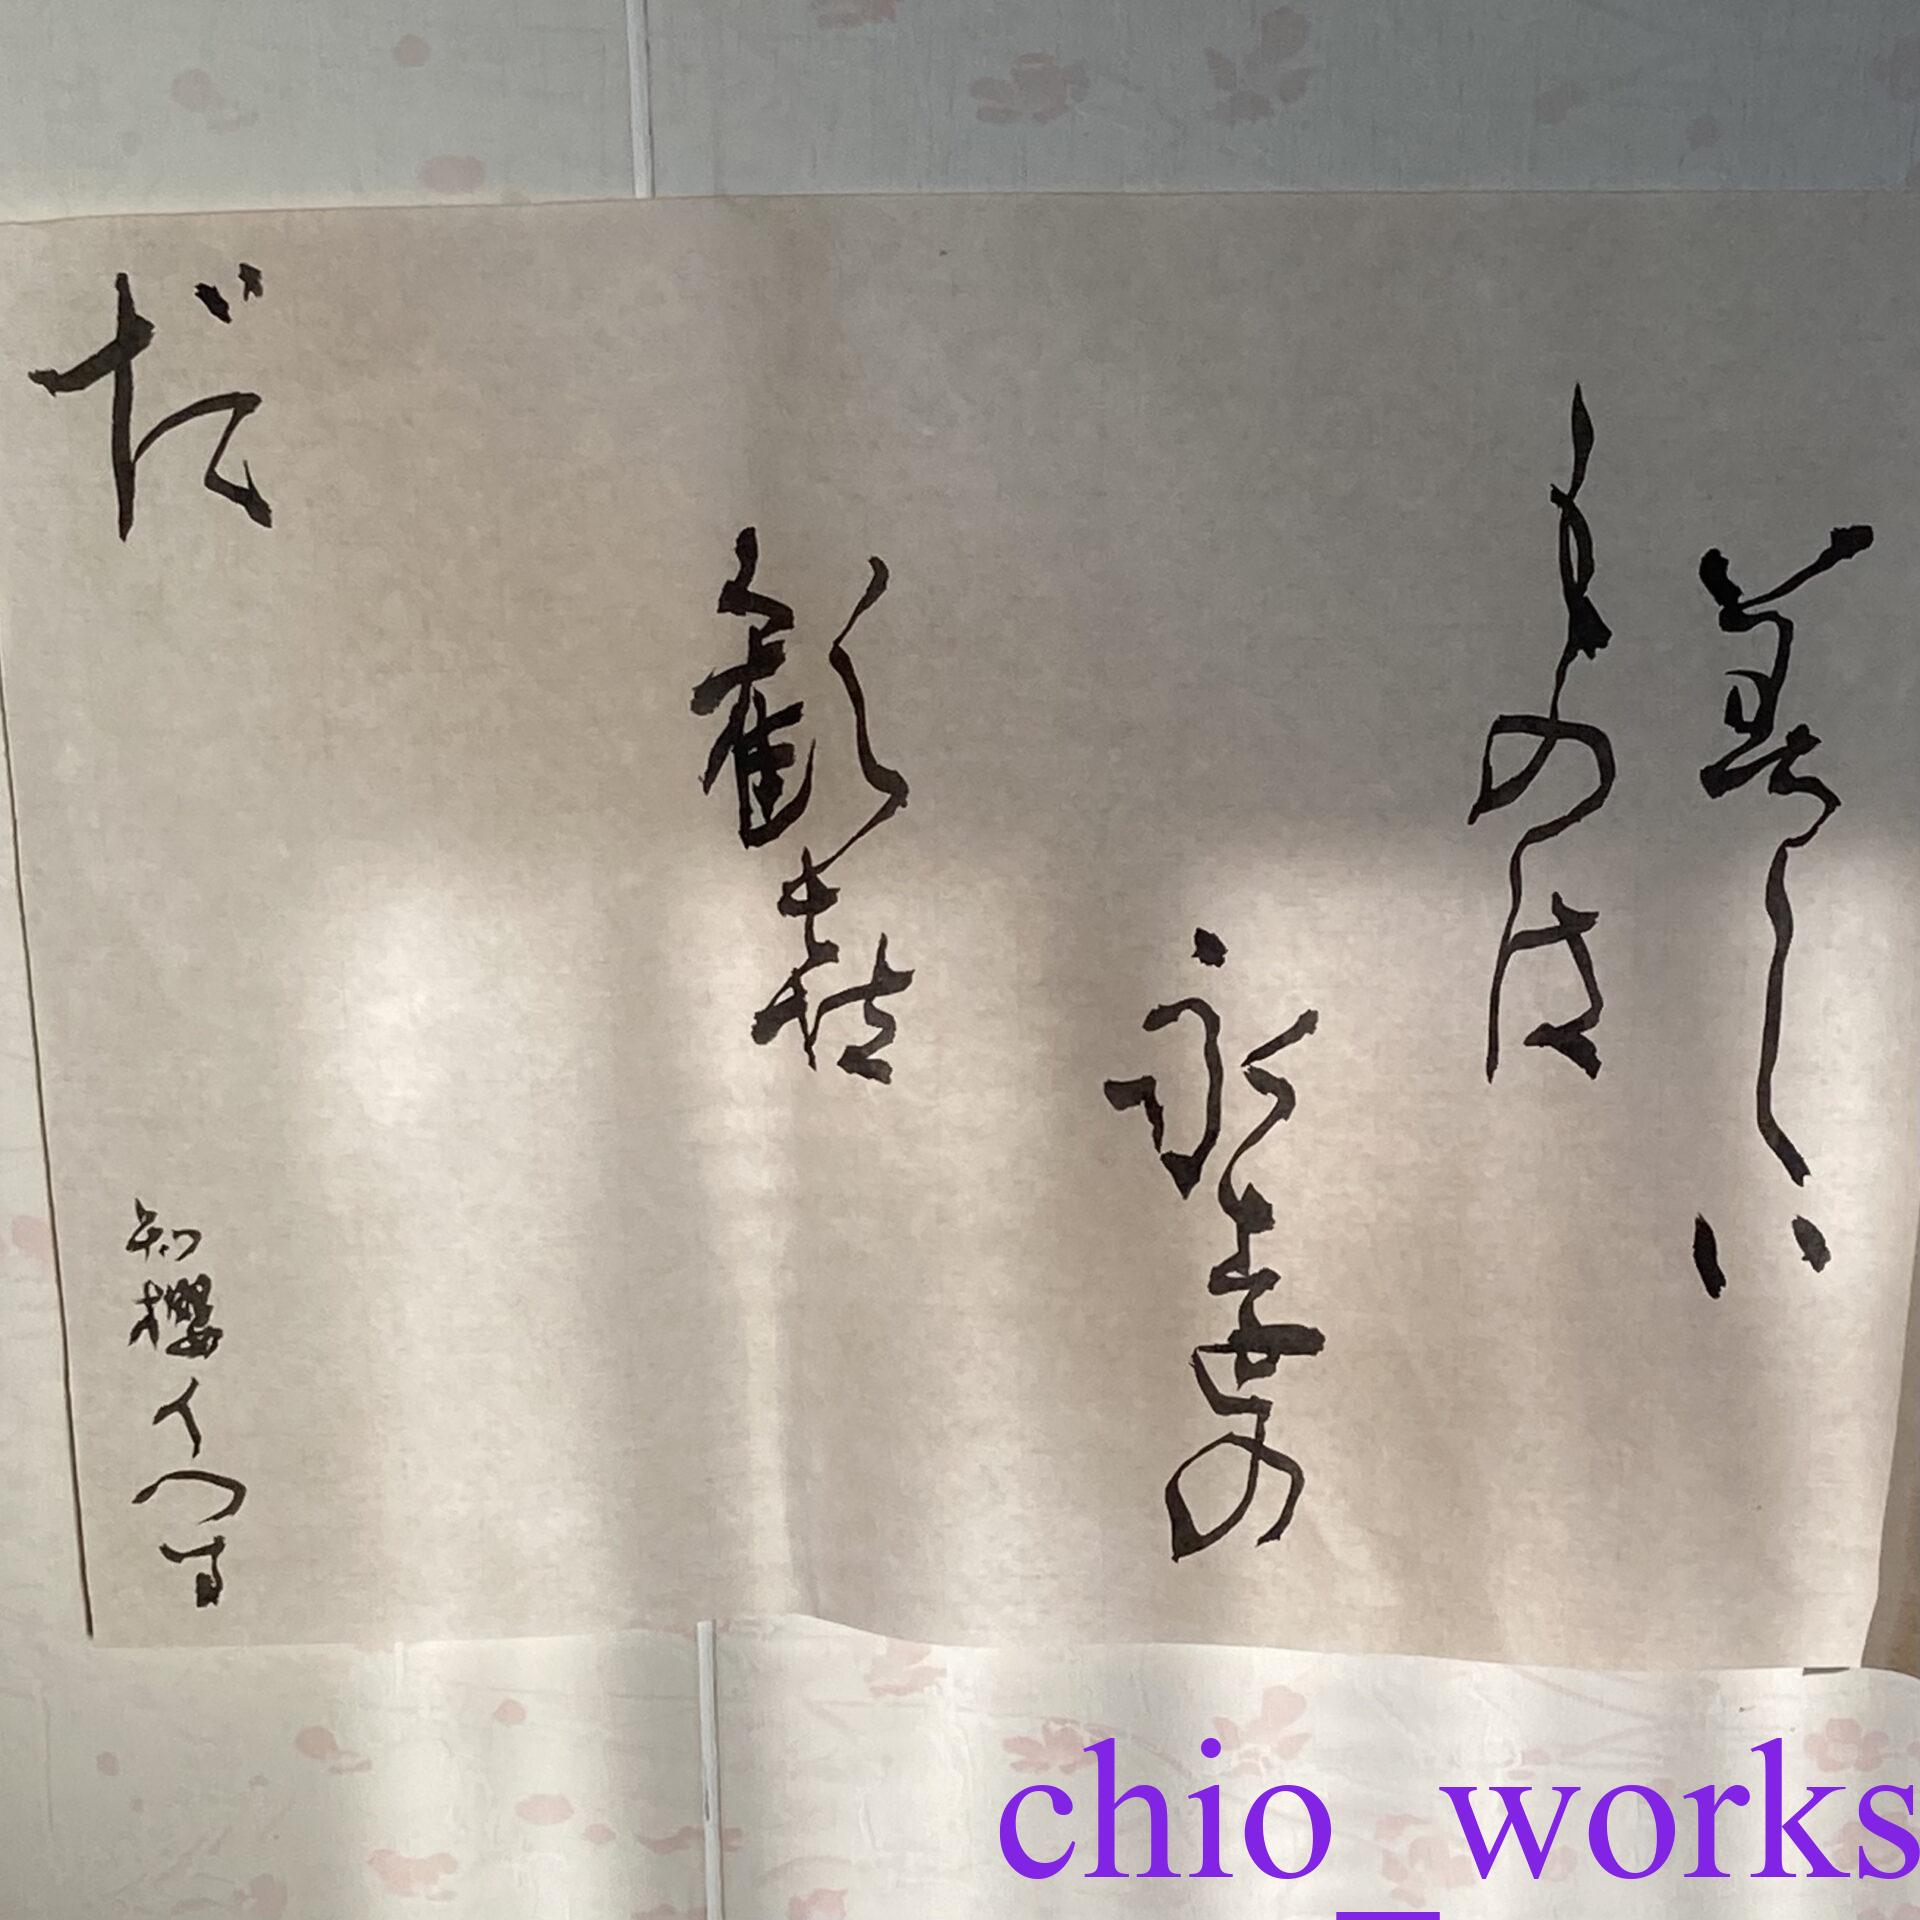 美しい
ものは
永遠の
歓喜
だ
知櫻
chio_works